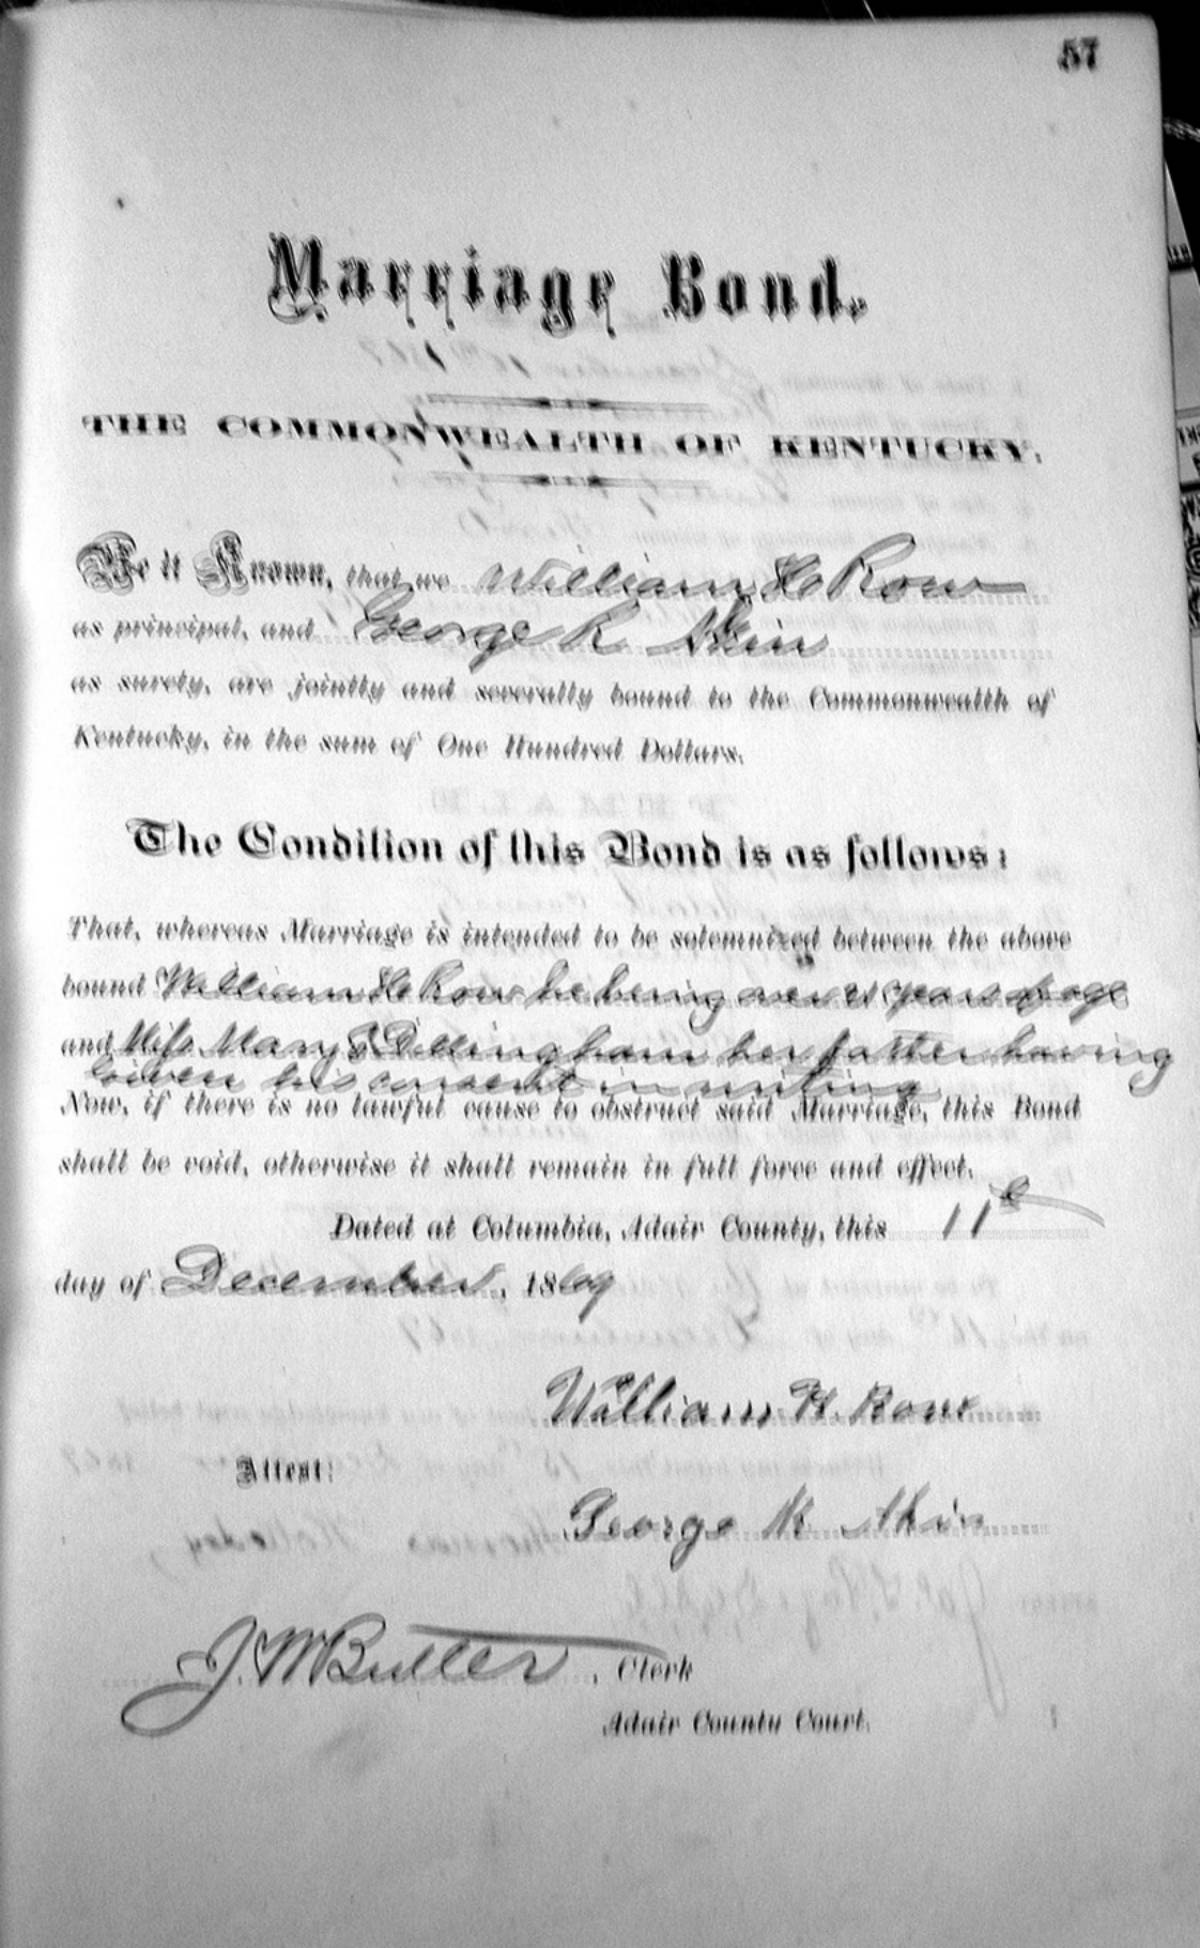 57
Marriage Bond.
THE COMMONWEALTH OF KENTUCKY.
Be it Known, that we William H Row
as principal, and George R Akin
as surety, are jointly and severally bound to the Commonwealth of
Kentucky, in the sum of One Hundred Dollars.
The Condition of this Bond is as follows:
That, whereas Marriage is intended to be solemnized between the above
bound William H Row he being over 21 years of age
and Miss Mary Dillingham her father having
Given his consent in writing
Now, if there is no lawful cause to obstruct said Marriage, this Bond
shall be void, otherwise it shall remain in full force and effect.
Dated at Columbia, Adair County, this 11
day of December, 1869
William H. Row
Attest:
George R Akin
J. W Butler, Clerk
Adair County Court.